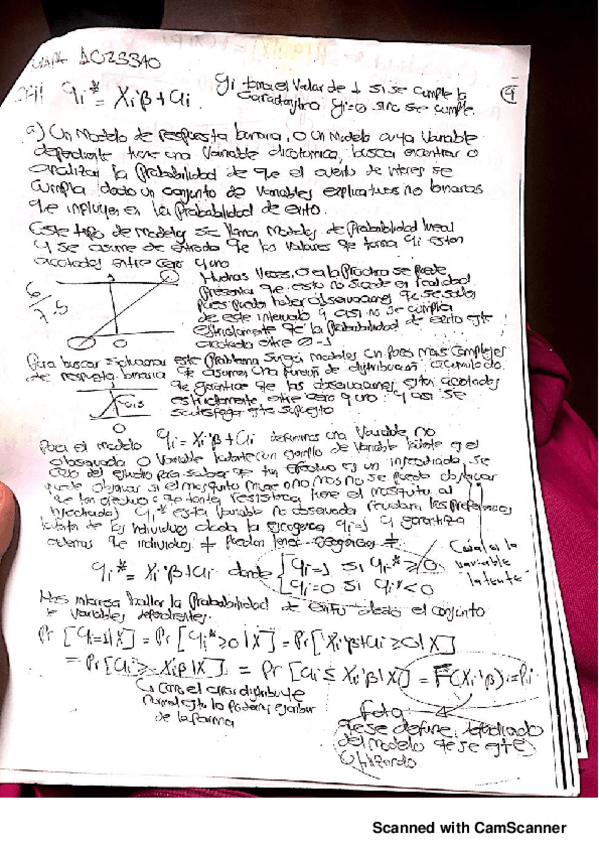 yi* = Xiβ + ui. yi toma el valor de 1 si se cumple la
yi=0 si no se cumple.
a) Un modelo de respuesta binaria, o un modelo cuya variable
dependiente tiene una variable dicotomica, busca encontrar o
analizar la probabilidad de que el evento de interes se
cumpla dado un conjunto de variables explicativas no binarias
que influyen en la probabilidad de exito.
Este tipo de modelos se llaman Modelos de Probabilidad lineal
y se asume de entrada que los valores que toma yi esten
acotados entre cero y uno
Muchas veces, o en la practica se puede
presentar que esto no sucede en realidad
pues puede haber observaciones que se salen
de este intervalo y asi no se cumplia
estrictamente que la probabilidad de exito este
acotada entre 0-1
Para buscar solucionar este problema surgen modelos un poco mas complejos
de respuesta binaria que asumen una función de distribución acumulada
que garantice que las observaciones esten acotadas
estrictamente entre cero y uno y asi se
satisfaga este supuesto
0
Para el modelo yi = Xi'β + ui definimos una variable no
observada o variable latente un ejemplo de variable latente es el
caso del estudio para saber que tan efectivo es un insecticida, se
puede observar si el mosquito muere o no mas no se puede observar
que tan efectivo o que tanta resistencia tiene el mosquito al
insecticida yi* esta variable no observada las preferencias
de los individuos dada la escogencia yi=1 y garantiza
ademas que individuos ≠ puedan tener ≠
yi* = Xi'β + ui donde { yi=1 si yi* ≥ 0
yi=0 si yi* < 0
Cual es la
variable
latente
Nos interesa hallar la probabilidad de exito dado el conjunto
de variables dependientes.
Pr [yi=1|X] = Pr [yi* ≥ 0 |X] = Pr [Xi'β + ui ≥ 0|X]
= Pr [ui ≥ - Xiβ |X] = Pr [ui ≤ Xi'β |Xi] = F(Xi'β) = Pi
como el error distribuye
normal esto lo podemos escribir
de la forma
que se define
del modelo que se este
utilizando
Scanned with CamScanner